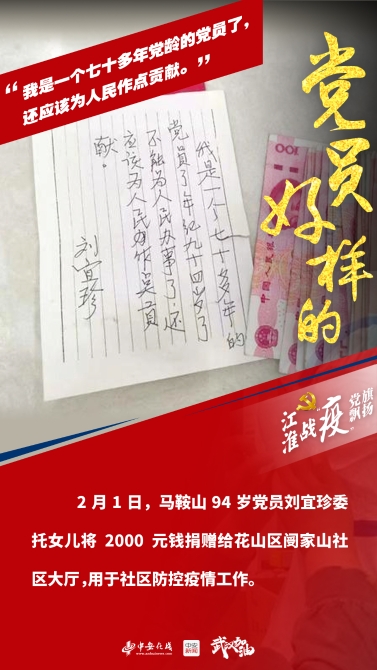 “我是一个七十多年党龄的党员了，
还应该为人民作点贡献。”
党员
好样的
我是一个七十多年的
党员了年纪九十四岁了
不能为人民办事了，还
应该为人民办作点贡
献。
刘宜珍
100
中国人民银行
江淮战“疫”
党旗飘扬
2月1日，马鞍山94岁党员刘宜珍委
托女儿将 2000 元钱捐赠给花山区阌家山社
区大厅，用于社区防控疫情工作。
中安在线
中安新闻